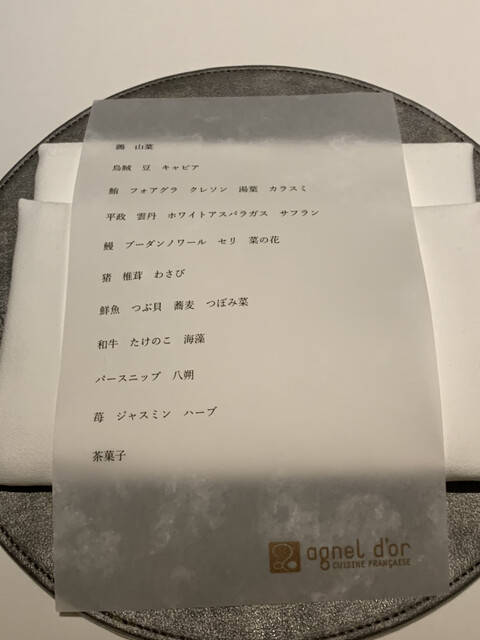 山菜
烏賊 豆 キャビア
鮪 フォアグラ クレソン 湯葉 カラスミ
平政 雲丹 ホワイトアスパラガス サフラン
鰻 ブーダンノワール セリ 菜の花
猪 椎茸 わさび
鮮魚 つぶ貝 蕎麦 つぼみ菜
和牛 たけのこ 海藻
パースニップ 八朔
苺 ジャスミン ハーブ
茶菓子
agnel d'or
CUISINE FRANÇAISE